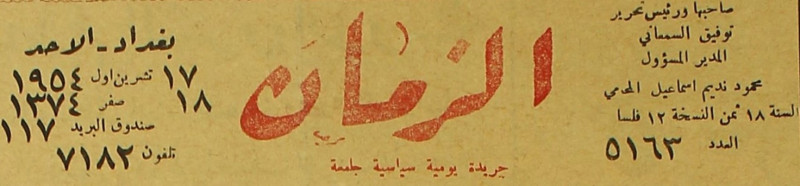 صاحبها ورئيس تحرير
توفيق السمعاني
المدير المسؤول
محمود نديم اسماعيل المحامي
السنة ١٨ ثمن النسخة ١٢ فلسا
العدد ٥١٦٣
الزمان
جريدة يومية سياسية جامعة
بغداد - الاحد
١٧ تشرين اول ١٩٥٤
١٨ صفر ١٣٧٤
صندوق البريد ١١٧
تلفون ٧١٨٢